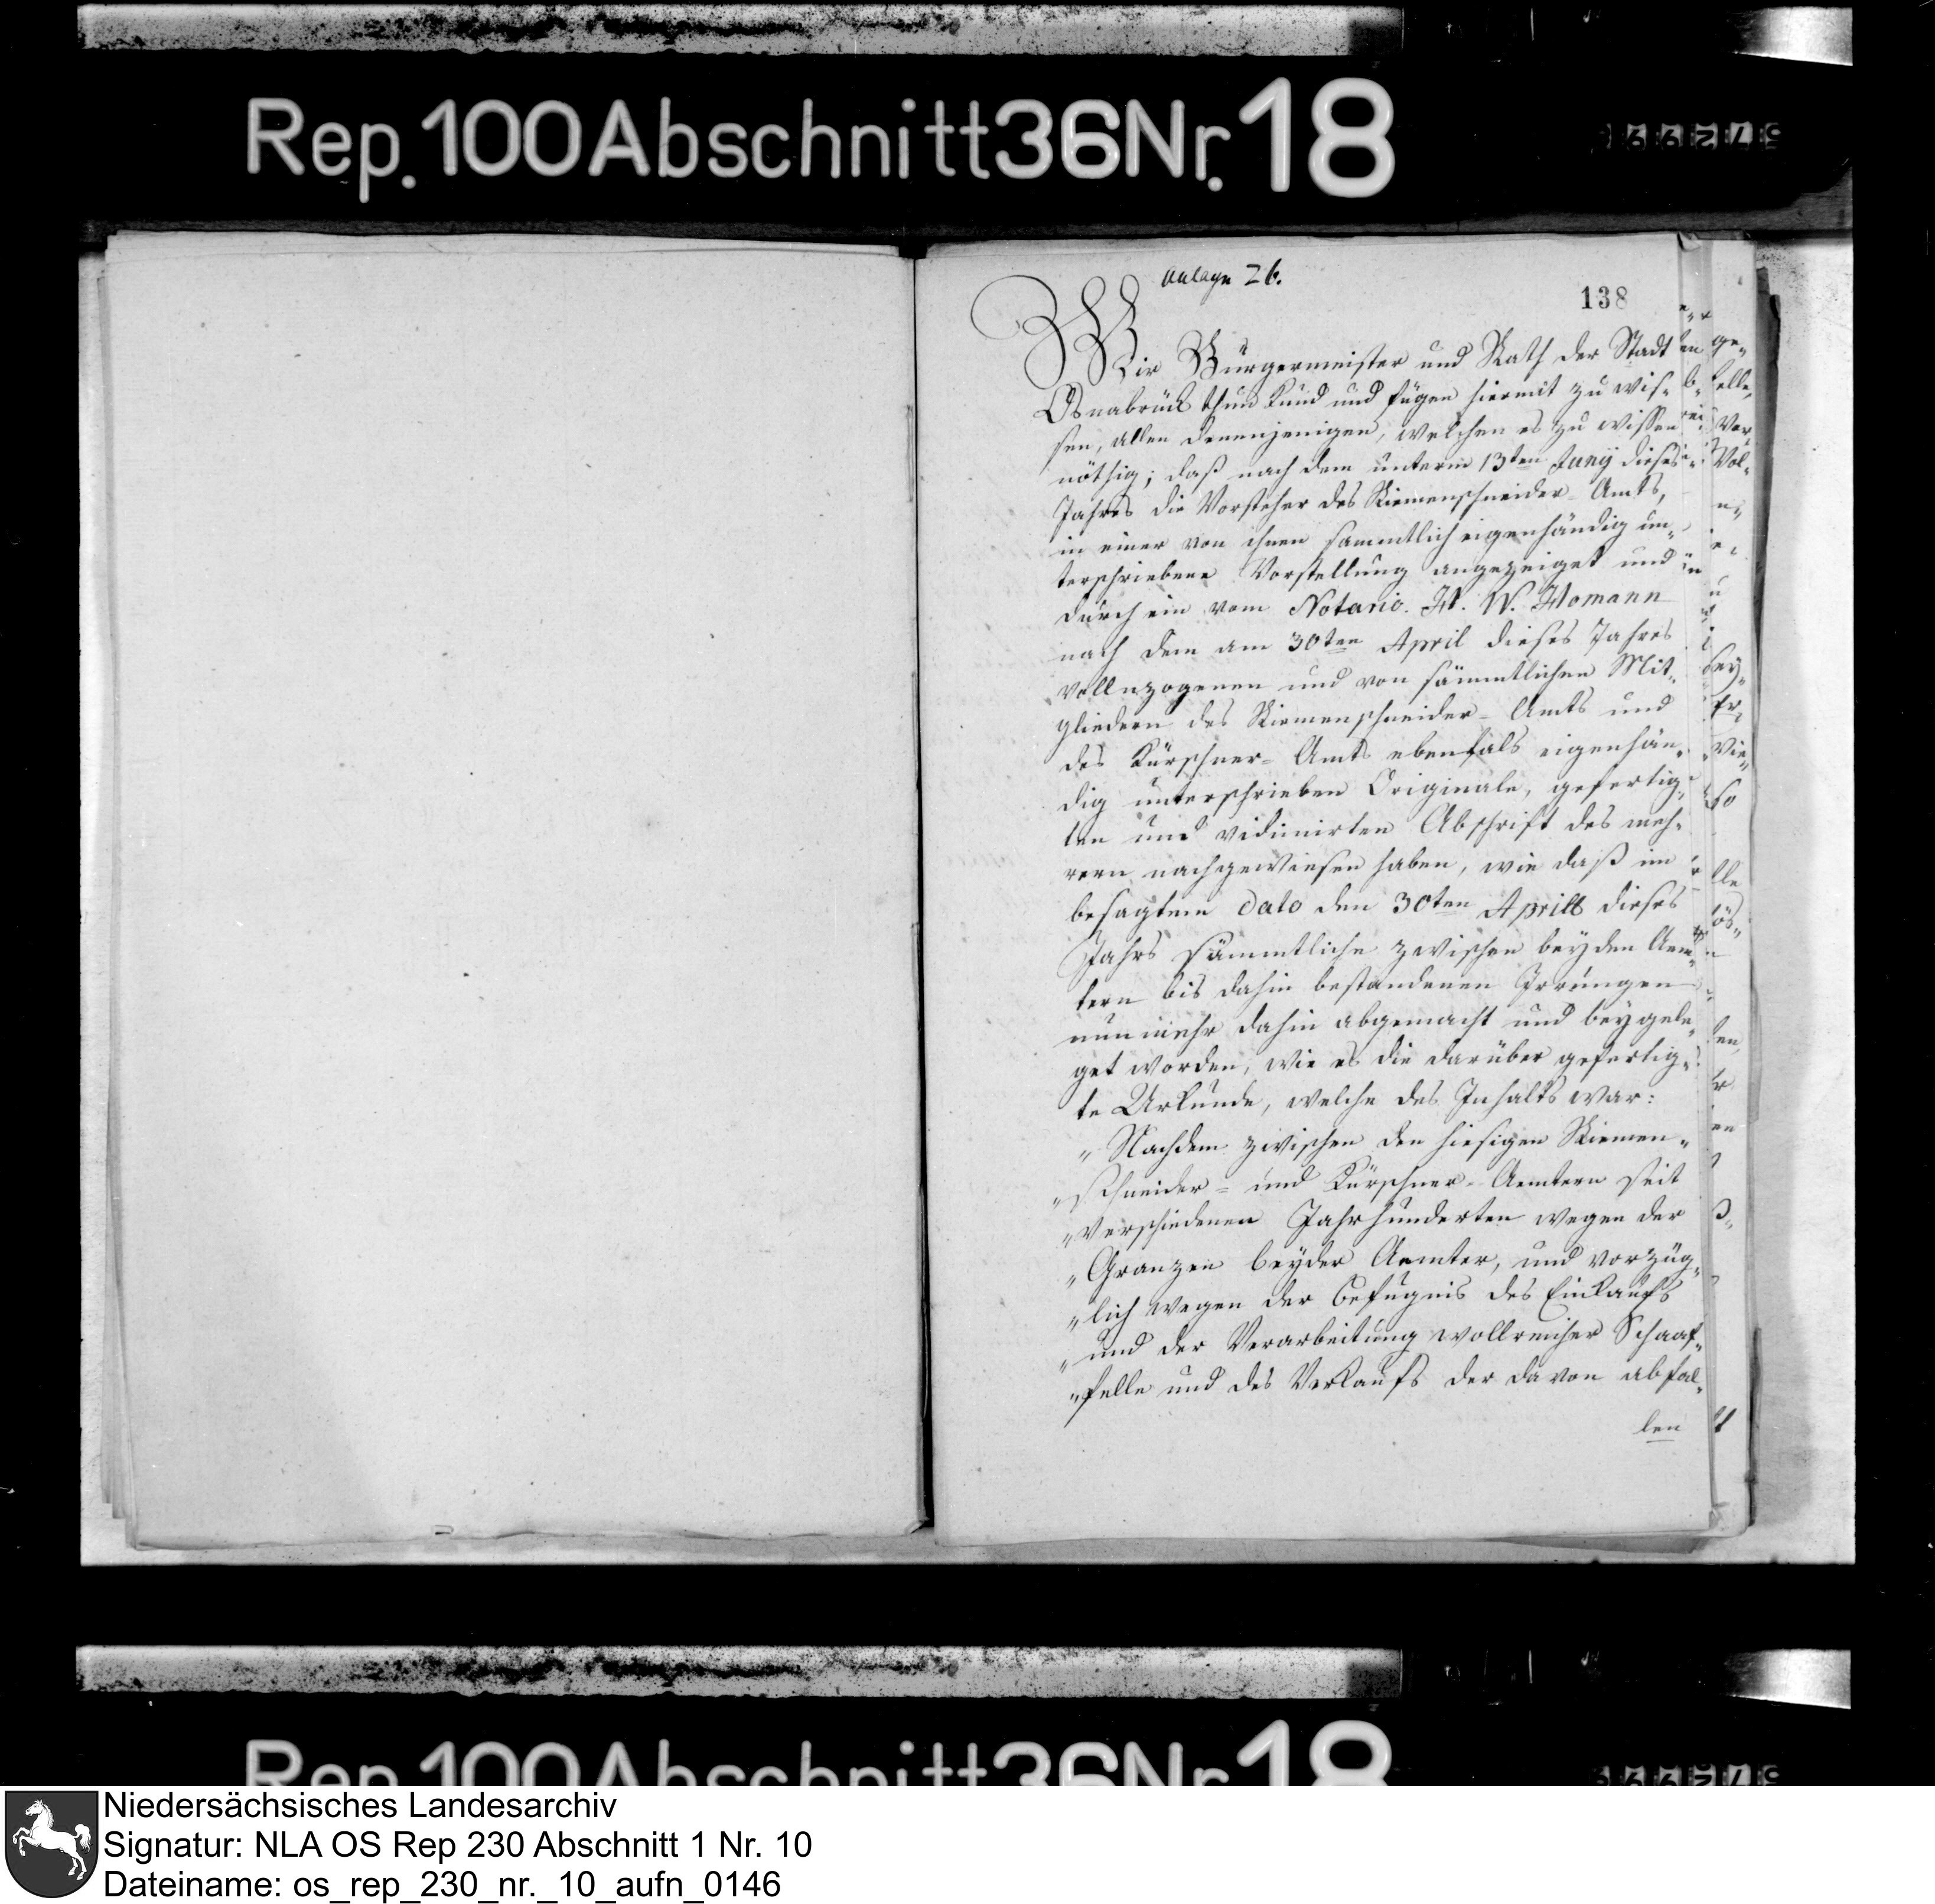 Rep. 100 Abschnitt 36 Nr. 18
Anlage 26.
138
Wir Burgermeister und Rath der Stadt
Osnabrück thun kund und fügen hiermit zu wis-
sen, allen denenjenigen, welchen es zu wissen
nöthig; daß nach dem unterm 13ten Junÿ dieses
Jahres die Vorsteher des Riemenschneider Amts,
in einer von ihnen sammtlich eigenhändig un-
terschriebene Vorstellung angezeiget und
durch ein vom Notario H. W. Homann
nach dem am 30ten April dieses Jahres
vollnzogenen und von sämmtlichen Mit-
gliedern des Riemenschneider-Amts und
des Kürschner-Amts ebenfals eigenhän-
dig unterschrieben Originale, gefertig-
ten und vidimirten Abschrift des meh-
rern nachgewiesen haben, wie daß im
besagtem dato den 30ten Aprill dieses
Jahrs sämmtliche zwischen beyden Aem-
tern bis dahin bestandenen Irrungen
nunmehr dahin abgemacht und beygele-
get worden, wie es die darüber gefertig-
te Urkunde, welche des Inhalts war:
"Nachdem zwischen den hiesigen Riemen-
"schneider- und Kürschner-Aemtern seit
"verschiedenen Jahrhunderten wegen der
"Granzen beyder Aemter, und vorzüg-
"lich wegen der Befugnis des Einkaufs
"und der Verarbeitung wollreicher Schaaf-
"felle und des Verkaufs der davon abfal-
len
Rep. 100 Abschnitt 36 Nr. 18
Niedersächsisches Landesarchiv
Signatur: NLA OS Rep 230 Abschnitt 1 Nr. 10
Dateiname: os_rep_230_nr._10_aufn_0146